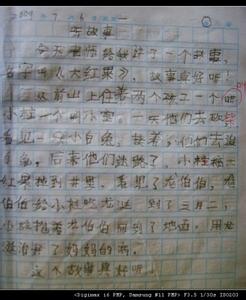 2009年7月6日 一
听故事
今天老师给我讲了一个故事,
名字叫《大红果》,故事真好听!
从前山上住着两个孩子一个叫
小桂一个叫水宝。一天他们去砍柴
看见一只小白兔,接着,他们去追
白兔。后来他们迷路了,小桂摘
红果掉到井里。看见了龙伯伯,龙
伯伯给小桂吃龙 到了三月二,
小桂 着龙伯伯回到了地面。用龙
治好了妈妈的病。
这个故事真好听!
<Digimax i6 PMP, Samsung #11 PMP> F3.5 1/30s ISO200